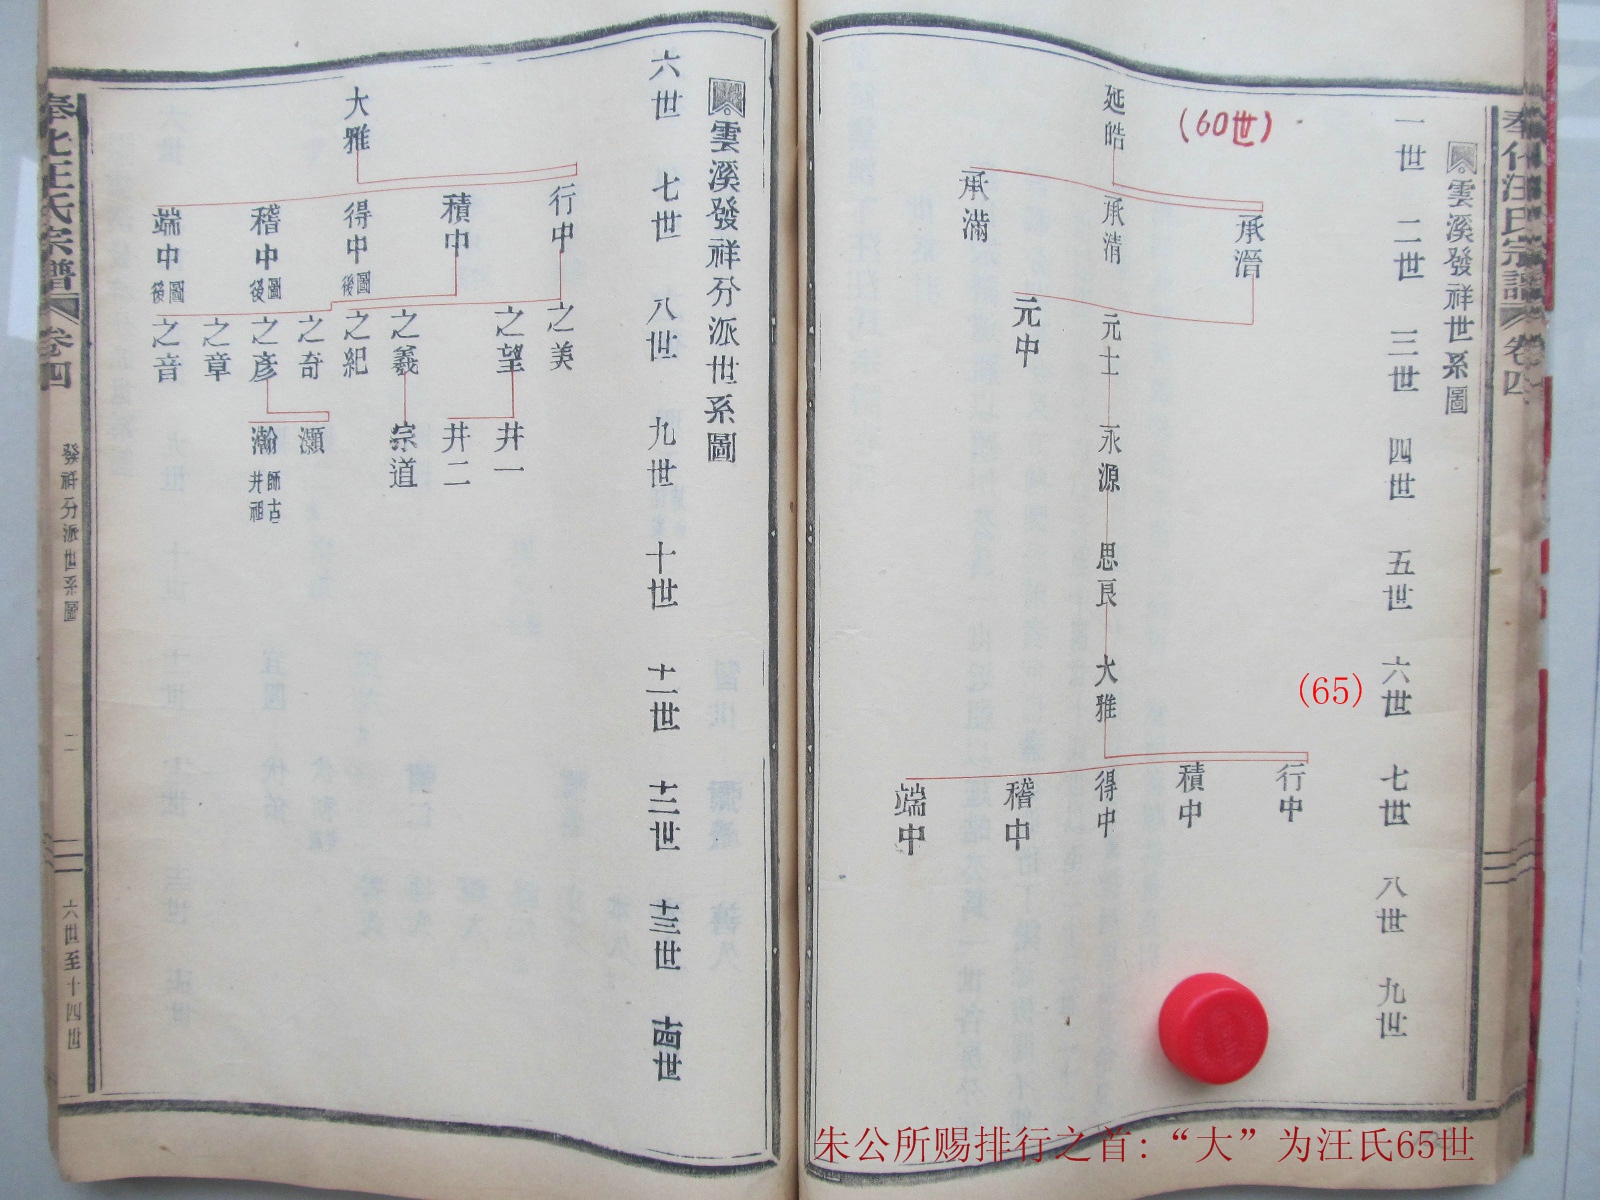 奉化汪氏宗譜 卷四
雲溪發祥世系圖
一世 二世 三世 四世 五世 六世 七世 八世 九世
(60世)
(65)
延皓
承濳 承清 承滿
元士 元中
永源
思良
大雅
行中 積中 得中 稽中 端中
雲溪發祥分派世系圖
六世 七世 八世 九世 十世 十一世 十二世 十三世 十四世
大雅
行中 積中 得中 圖後 稽中 圖後 端中 圖後
之美 之望 之義 之紀 之奇 之彥 之章 之音
井一 井二 宗道 灝 瀚 師古井祖
奉化汪氏宗譜 卷四
發祥分派世系圖
二
六世至十四世
朱公所赐排行之首:“大”为汪氏65世